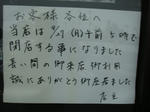 お客様各位へ
当店は9/27(月)午前5時で
閉店する事になりました
長い間の御来店御利用
誠にありがとう御座居ました
店主